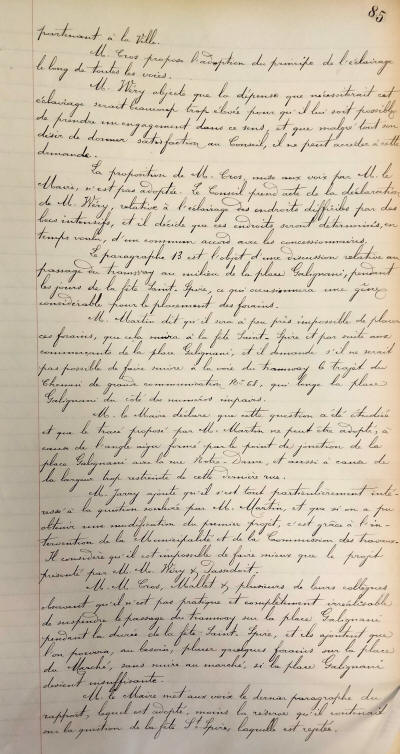 85
partenant à la Ville.
M. Cros propose l'adoption du principe de l'éclairage
le long de toutes les voies.
M. Wéry objecte que la dépense que nécessiterait cet
éclairage serait beaucoup trop élevée pour qu'il lui soit possible
de prendre un engagement dans ce sens, et que malgré tout son
désir de donner satisfaction au Conseil, il ne peut accéder à cette
demande.
La proposition de M. Cros, mise aux voix par M. le
Maire, n'est pas adoptée. Le Conseil prend acte de la déclaration
de M. Wéry, relative à l'éclairage des endroits difficiles par des
becs intensifs, et il décide que ces endroits seront déterminés, en
temps voulu, d'un commun accord avec les concessionnaires.
Le paragraphe 13 est l'objet d'une discussion relative au
passage du tramway au milieu de la place Galignani, pendant
les jours de la fête Saint-Spire, ce qui occasionnera une gêne
considérable pour le placement des forains.
M. Martin dit qu'il sera à peu près impossible de placer
ces forains, que cela nuira à la fête Saint-Spire et par suite aux
commerçants de la place Galignani, et il demande s'il ne serait
pas possible de faire suivre à la voie du tramway le trajet du
Chemin de grande communication No 65, qui longe la place
Galignani du côté du numéros impairs.
M. le Maire déclare que cette question a été étudiée
et que le tracé proposé par M. Martin ne peut être adopté, à
cause de l'angle aigu formé par le point de jonction de la
place Galignani avec la rue Notre-Dame, et aussi à cause de
la largeur trop restreinte de cette dernière rue.
M. Jarry ajoute qu'il s'est tout particulièrement inté-
ressé à la question soulevée par M. Martin, et que si on a pu
obtenir une modification du premier projet, c'est grâce à l'in-
tervention de la Municipalité et de la Commission des travaux.
Il considère qu'il est impossible de faire mieux que le projet
présenté par M. M. Wéry &
M. M. Cros, Mallet &, plusieurs de leurs collègues
observent qu'il n'est pas pratique et complètement irréalisable
de suspendre le passage du tramway sur la place Galignani
pendant la durée de la fête Saint-Spire, et ils ajoutent que
l'on pourra, au besoin, placer quelques forains sur la place
du Marché, sans nuire au marché, si la place Galignani
devient insuffisante.
M. le Maire met aux voix le dernier paragraphe du
rapport, lequel est adopté, moins la réserve qu'il contenait
sur la question de la fête St Spire, laquelle est rejetée.